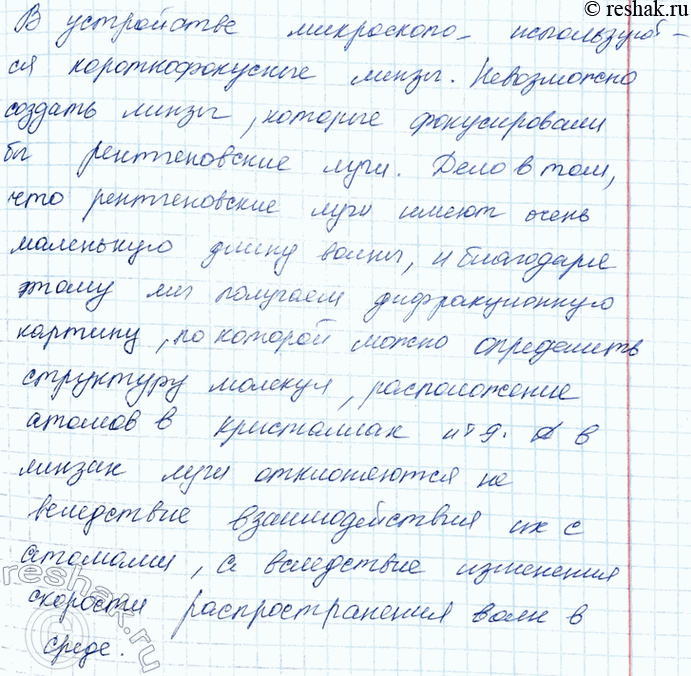 © reshak.ru
В устройстве микроскопо- использую-
ся короткофокусные линзы. Невозможно
создать линзы, которые фокусировали
бы рентгеновские лучи. Дело в том,
что рентгеновские лучи имеют очень
маленькую длину волны, и благодаря
этому мы получаем дифракционную
картину, по которой можно определить
структуру молекул, расположение
атомов в кристаллах и т д. В в
линзах лучи отклоняются не
вследствие взаимодействия их с
атомами, а вследствие изменения
скорости распространения волн в
среде.
reshak.ru